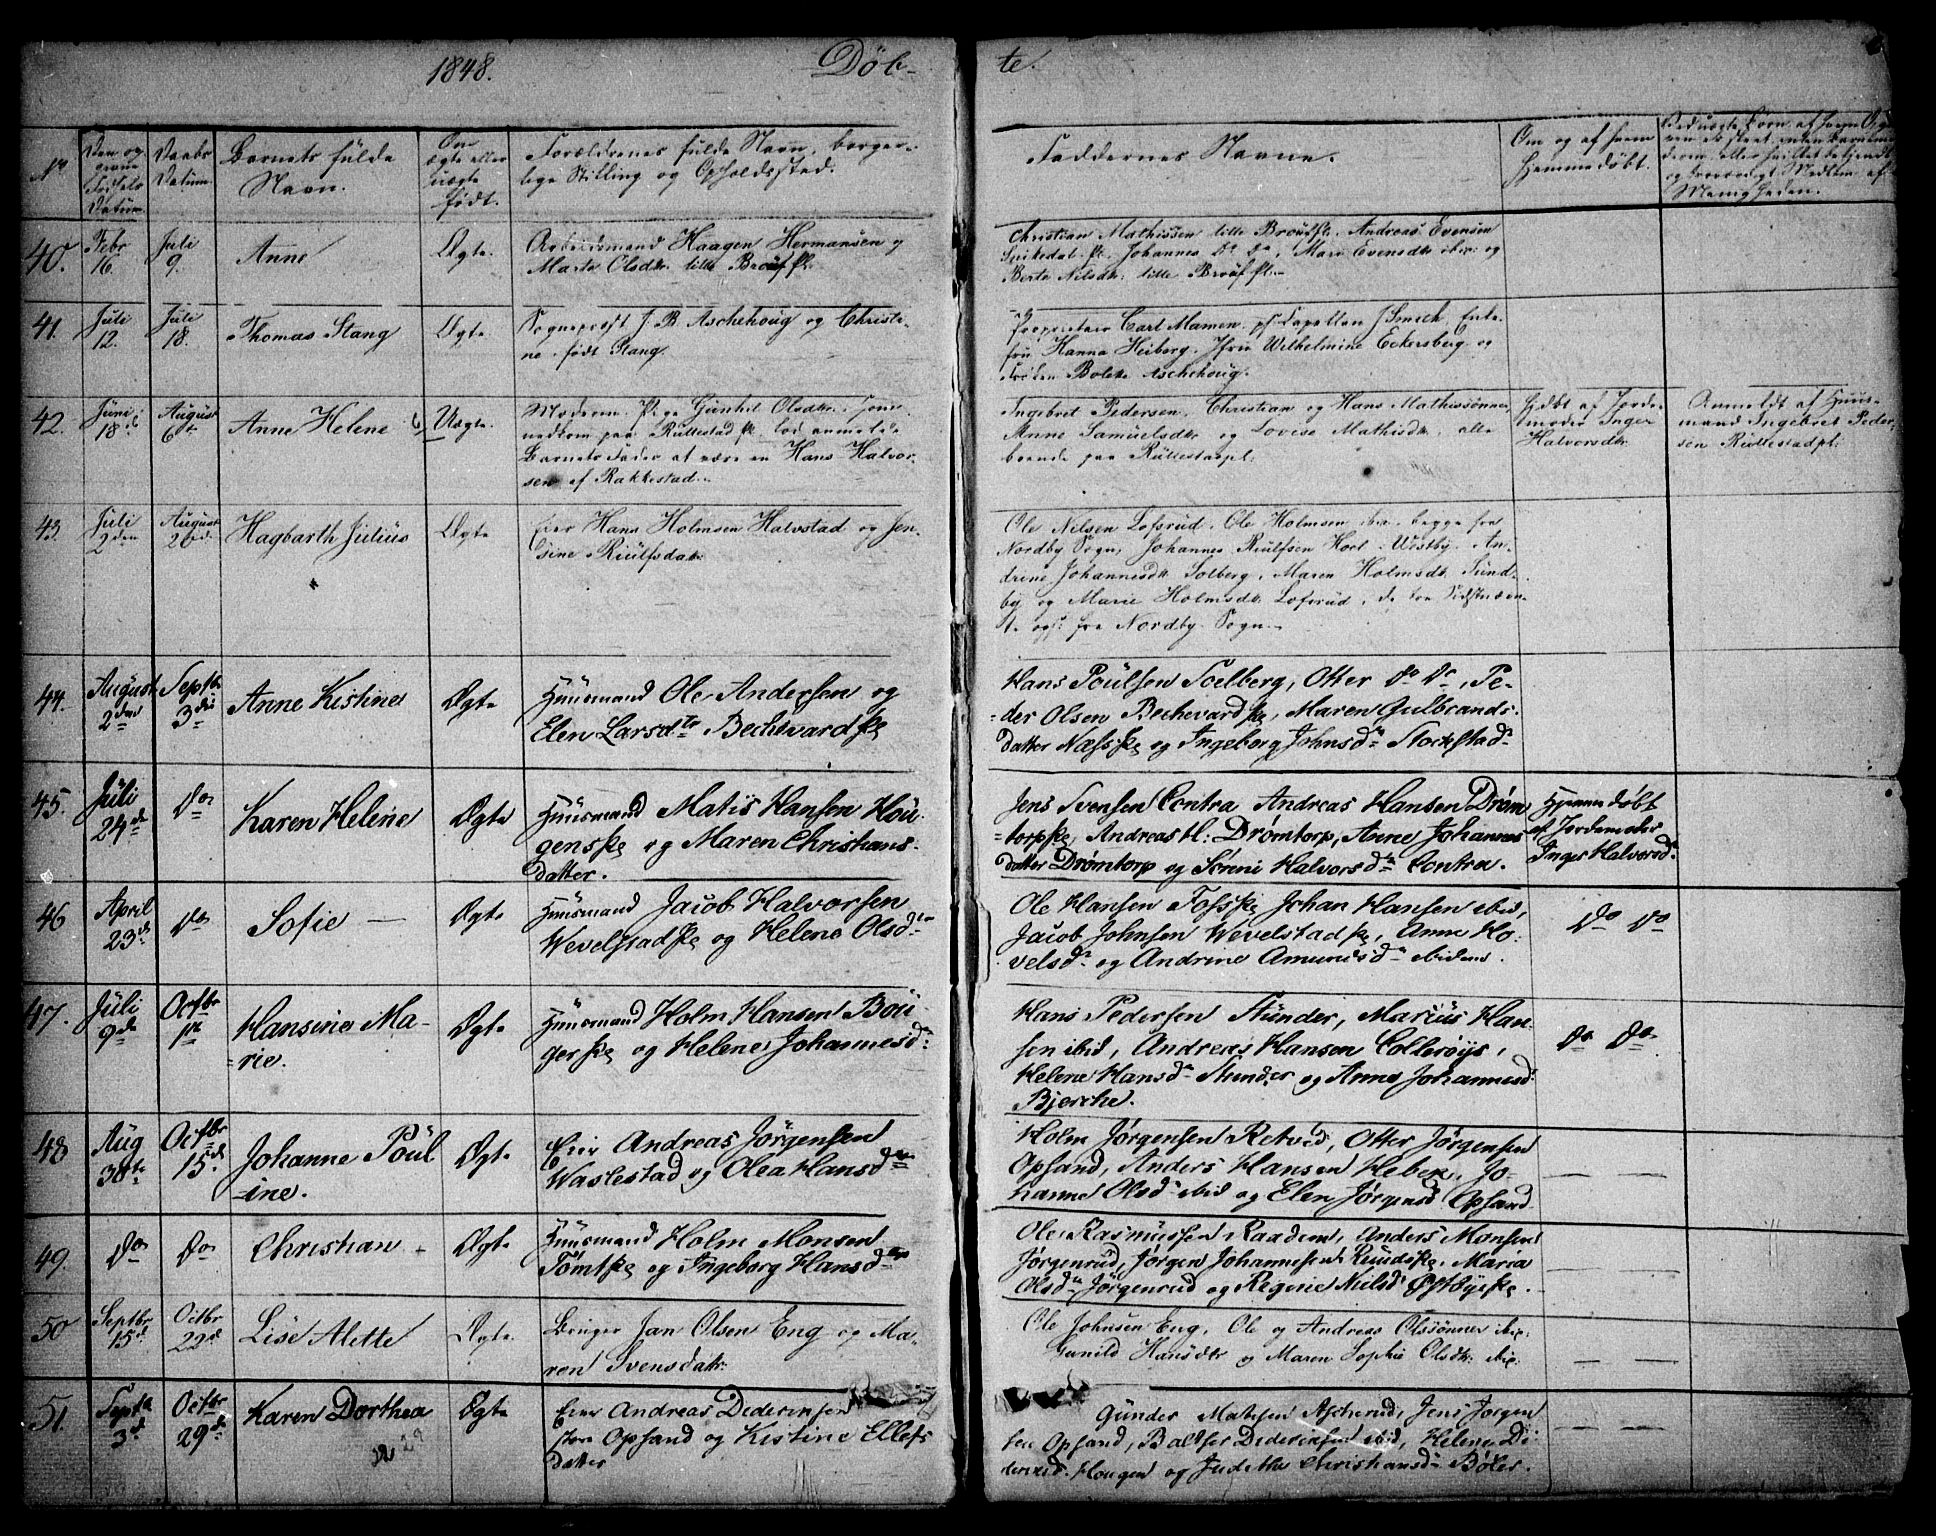 1848. Døb- te.
No
Den og
Fødsels
Datum.
Daabs
Datum.
Barnets fulde
Navn.
Om
ægte eller
uægte
født.
Forældrenes fulde Navn, borger-
lige Stilling og Opholdssted.
Faddernes Navne.
Om og af hvem
hjemmedøbt.
40. Febr 16. Juli 9. Anne Ægte.
Arbeidsmand Haagen Hermansen og
Marte Olsdtr. lille Brous pl.
Christian Mathissen lille Brous pl. Andreas Evensen
Johannes Do Do, Mari Evensdtr ibid. og
Berte Nilsdtr. lille Brous pl.
41. Juli 12. Juli 18. Thomas Stang Ægte
Sogneprest J. B. Aschehoug og Christi-
ne født Stang.
Proprietair Carl Mamen. ps. Capellan J Smith, Enke-
fru Hanna Heiberg. Jfru Wilhelmine Eckersberg og
Frøken Bolette Aschehoug.
42. Juni 18. August 6te Anne Helene Uægte.
Moderen Pige Gunhil Olsdtr. hjem-
Rullestad pl. lod anmelde
Barnets Fader at være en Hans Halvor-
sen af Rakkestad.
Ingebret Pedersen, Christian og Hans Mathissønner,
Anne Samuelsdtr og Lovise Mathisdtr. alle
boende paa Rullestadpl.
Hjdbt af Jorde-
moder Inger
Halvorsdtr
Anmeldt af Huus-
mand Ingebret Peder-
sen Rullestadpl.
43. Juli 2den August Hagbarth Julius Ægte
Eier Hans Holmsen Halvstad og Jen-
sine Riulfsdatr
Ole Nilsen Lofsrud. Ole Holmsen ibid. begge fra
Nordby Sogn, Johannes Riulfsen Hoel Vestby. An-
drine Johannesdtr Solberg, Maren Holmsdtr Sund-
by og Marie Holmsdtr Lofsrud, de to Sidstnævn-
te ogs. fra Nordby Sogn.
44. August 2den Septbr 3die Anne Kistine Ægte
Huusmand Ole Andersen og
Elen Larsdtr Bechevard pl
Hans Poulsen Solberg, Otter Do Do, Pe-
der Olsen Bechevard pl, Maren Gulbrands-
datter Næss pl og Ingeborg Johnsdr Storkstad
45. Juli 24de Do Karen Helene Ægte
Huusmand Matis Hansen Hou-
gens pl og Maren Christians-
datter.
Jens Svensen Contra Andreas Hansen Drøm-
torp pl, Andreas Drømtorp, Anne Johannes
datter Drømtorp og Sereni Halvorsdr Contra.
Hjemmedøbt
af Jordemoder
Inger Halvorsdr
46 April 23de Do Sofie — Ægte
Huusmand Jacob Halvorsen
Wevelstad pl og Helene Olsdr
Ole Hansen Foss pl Johan Hansen ibid,
Jacob Johnsen Wevelstad pl, Anne Ho-
velsdr og Andrine Amundsdr ibidem.
Do Do
47. Juli 9de Octbr 1te Hansine Ma-
rie. Ægte
Huusmand Holm Hansen Bøli-
ger pl og Helene Johannesdr
Hans Pedersen Stunder, Marius Han-
sen ibid, Andreas Hansen Collerøiys,
Helene Hansdr Stunder og Anne Johannesdr
Bjerche.
Do Do
48 Aug 30te Octbr 15de Johanne Poul
ine. Ægte
Eier Andreas Jørgensen
Waslestad og Olea Hansdr
Holm Jørgensen Retvid, Otter Jørgensen
Opsand, Anders Hansen Heber, Jo-
hanne Olsdr ibid og Elen Jørgensdr Opsand
— —
49. Do Do Christian Ægte
Huusmand Holm Monsen
Tømt pl og Ingeborg Hansdr
Ole Rasmussen Raadem, Anders Monsen
Jørgenrud, Jørgen Johannesen Rud pl, Maria
Olsdr Jørgenrud og Regine Nielsdr Østbye pl.
— —
50 Septbr 15de Octbr 22de Lise Alette Ægte
Bruger Jan Olsen Eng og Ma-
ren Svensdatr
Ole Johnsen Eng, Ole og Andreas Olssønner ibid.
Gunild Hansdtr og Maren Sophie Olsdtr. ibid.
— —
51. Septbr 3de Octbr 29de Karen Dorthea Ægte
Eier Andreas Dideriksen
store Opsand og Kistine Ellefs
datter
Gunder Matisen Ascherud, Jens Jørgen
sen Opsand, Baltser Dideriksen ibid, Helene Di-
deriksd. Hougen og Judithe Christiansdr Bøler.
— —
29